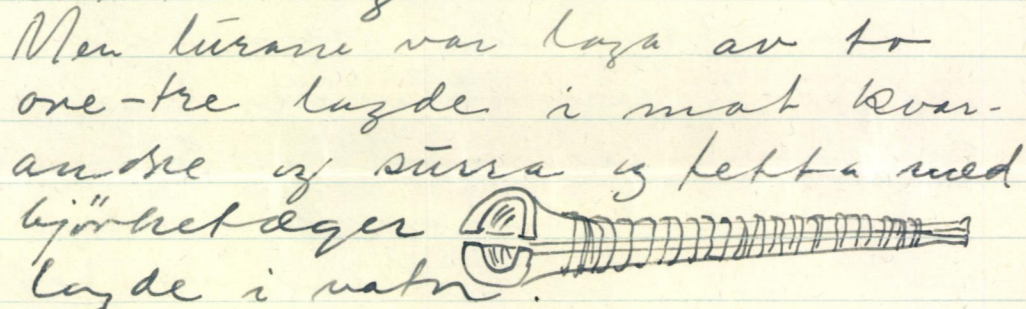 Men lurane var laga av to
ore-tre lagde i mot kvar-
andre og surra og tetta med
björketæger
lagde i vatn.